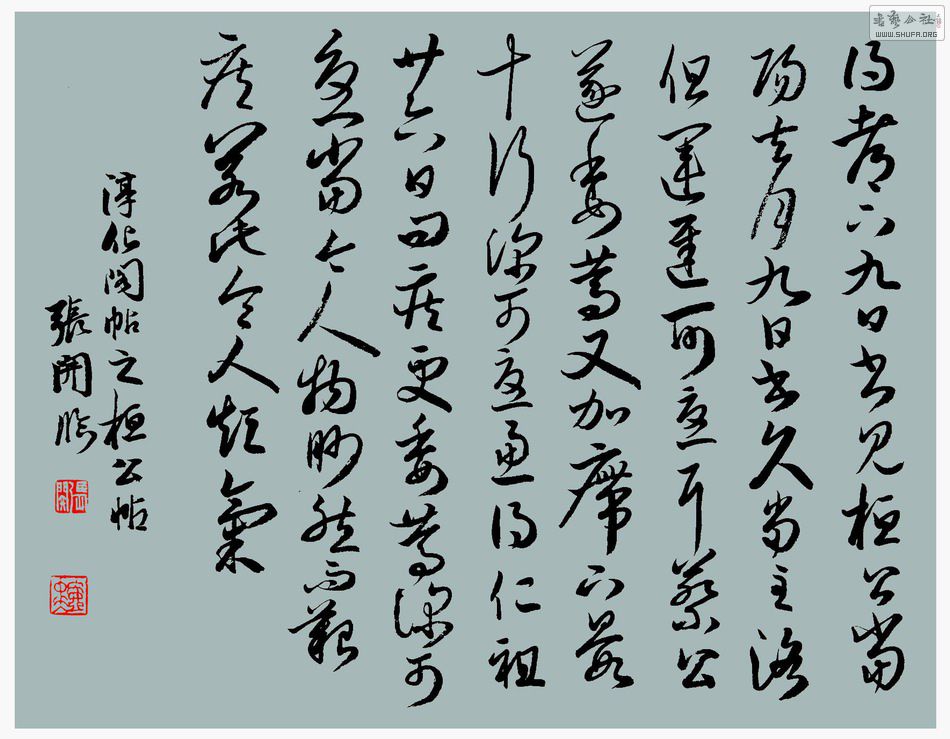 得都下九日書見桓公當
陽去月九日書久當至洛
但運遲可憂耳蔡公
遂委篤又加廗下日數
十行深可憂慮得仁祖
廿六日問疾更委篤深可
憂當今人物眇然而艱
疾若此令人短氣
淳化閣帖之桓公帖
張開臨
張開
WWW.SHUFA.ORG